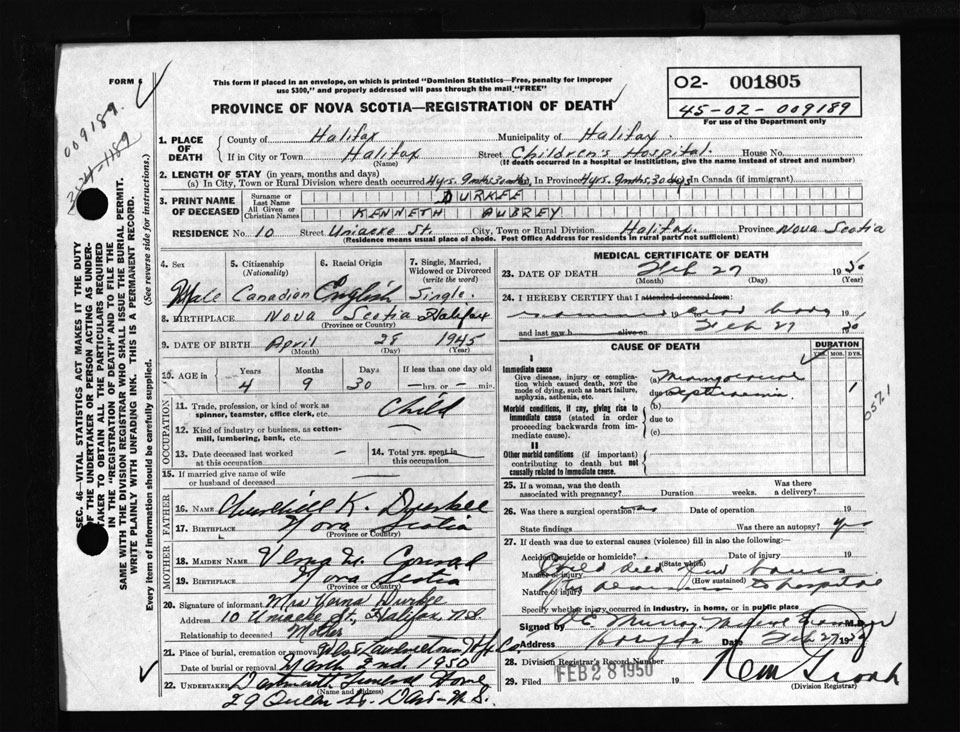 FORM 6
009189.
This form if placed in an envelope, on which is printed "Dominion Statistics—Free, penalty for improper
use $300," and properly addressed will pass through the mail "FREE"
PROVINCE OF NOVA SCOTIA—REGISTRATION OF DEATH
O2- 001805
45-02-009189
For use of the Department only
SEC. 46—VITAL STATISTICS ACT MAKES IT THE DUTY
OF THE UNDERTAKER OR PERSON ACTING AS UNDER-
TAKER TO OBTAIN ALL THE PARTICULARS REQUIRED
IN THE "REGISTRATION OF DEATH" AND TO FILE THE
SAME WITH THE DIVISION REGISTRAR WHO SHALL ISSUE THE BURIAL PERMIT.
WRITE PLAINLY WITH UNFADING INK. THIS IS A PERMANENT RECORD.
Every item of information should be carefully supplied. (See reverse side for instructions.)
1. PLACE OF DEATH
County of Halifax Municipality of Halifax.
If in City or Town Halifax (Name) Street Children's Hospital. House No.
(If death occurred in a hospital or institution, give the name instead of street and number)
2. LENGTH OF STAY (in years, months and days)
(s) In City, Town or Rural Division where death occurred 4yrs. 9mths. 30 , In Province 4yrs. 9mths. 30dys In Canada (if immigrant)
3. PRINT NAME OF DECEASED
Surname or Last Name DURKEE
All Given or Christian Names KENNETH AUBREY
RESIDENCE No. 10 Street Uniacke St. City, Town or Rural Division Halifax. Province Nova Scotia
(Residence means usual place of abode. Post Office Address for residents in rural parts not sufficient)
4. Sex Male
5. Citizenship (Nationality) Canadian
6. Racial Origin English
7. Single, Married, Widowed or Divorced (write the word) Single.
8. BIRTHPLACE Nova Scotia Halifax
(Province or Country)
9. DATE OF BIRTH April 28 1945
(Month) (Day) (Year)
10. AGE in Years 4 Months 9 Days 30 If less than one day old — hrs. or — min.
OCCUPATION
11. Trade, profession, or kind of work as spinner, teamster, office clerk, etc. Child
12. Kind of industry or business, as cotton-mill, lumbering, bank, etc. —
13. Date deceased last worked at this occupation —
14. Total yrs. spent in this occupation —
15. If married give name of wife or husband of deceased —
FATHER
16. NAME Churchill K. Durkee
17. BIRTHPLACE Nova Scotia
(Province or Country)
MOTHER
18. MAIDEN NAME Conrad
19. BIRTHPLACE Nova Scotia
(Province or Country)
20. Signature of informant Mrs Verna Durkee
Address 10 Uniacke St., Halifax, N.S.
Relationship to deceased Mother
21. Place of burial, cremation or removal West Lawrencetown Hfx Co.
Date of burial or removal March 2nd. 1950
22. UNDERTAKER Dartmouth Funeral Home
(Name and address)
29 Queen St. Dart- N.S.
MEDICAL CERTIFICATE OF DEATH
23. DATE OF DEATH Feb 27 1950
(Month) (Day) (Year)
24. I HEREBY CERTIFY that I attended deceased from:
examined dead body 19
and last saw h alive on Feb 27 1950
CAUSE OF DEATH
DURATION
YRS. MOS. DYS.
I
Immediate cause
Give disease, injury or complication which caused death, NOT the mode of dying, such as heart failure, asphyxia, asthenia, etc.
(a) Meningococcal
due to Septicaemia 1
Morbid conditions, if any, giving rise to immediate cause (stated in order proceeding backwards from immediate cause).
(b)
due to
(c)
II
Other morbid conditions (if important) contributing to death but not causally related to immediate cause.
0571
25. If a woman, was the death associated with pregnancy? Duration weeks. Was there a delivery?
26. Was there a surgical operation? no Date of operation 19
State findings Was there an autopsy? yes
27. If death was due to external causes (violence) fill in also the following:
Accident, suicide or homicide? Date of injury 19
(State which)
Manner of injury Child died few hours
(How sustained)
Nature of injury after admission to hospital
Specify whether injury occurred in industry, in home, or in public place
Signed by Murray Medical Examiner M.D.
Address Halifax Date Feb 27 1950
28. Division Registrar's Record Number
29. Filed FEB 28 1950 19
(Division Registrar)